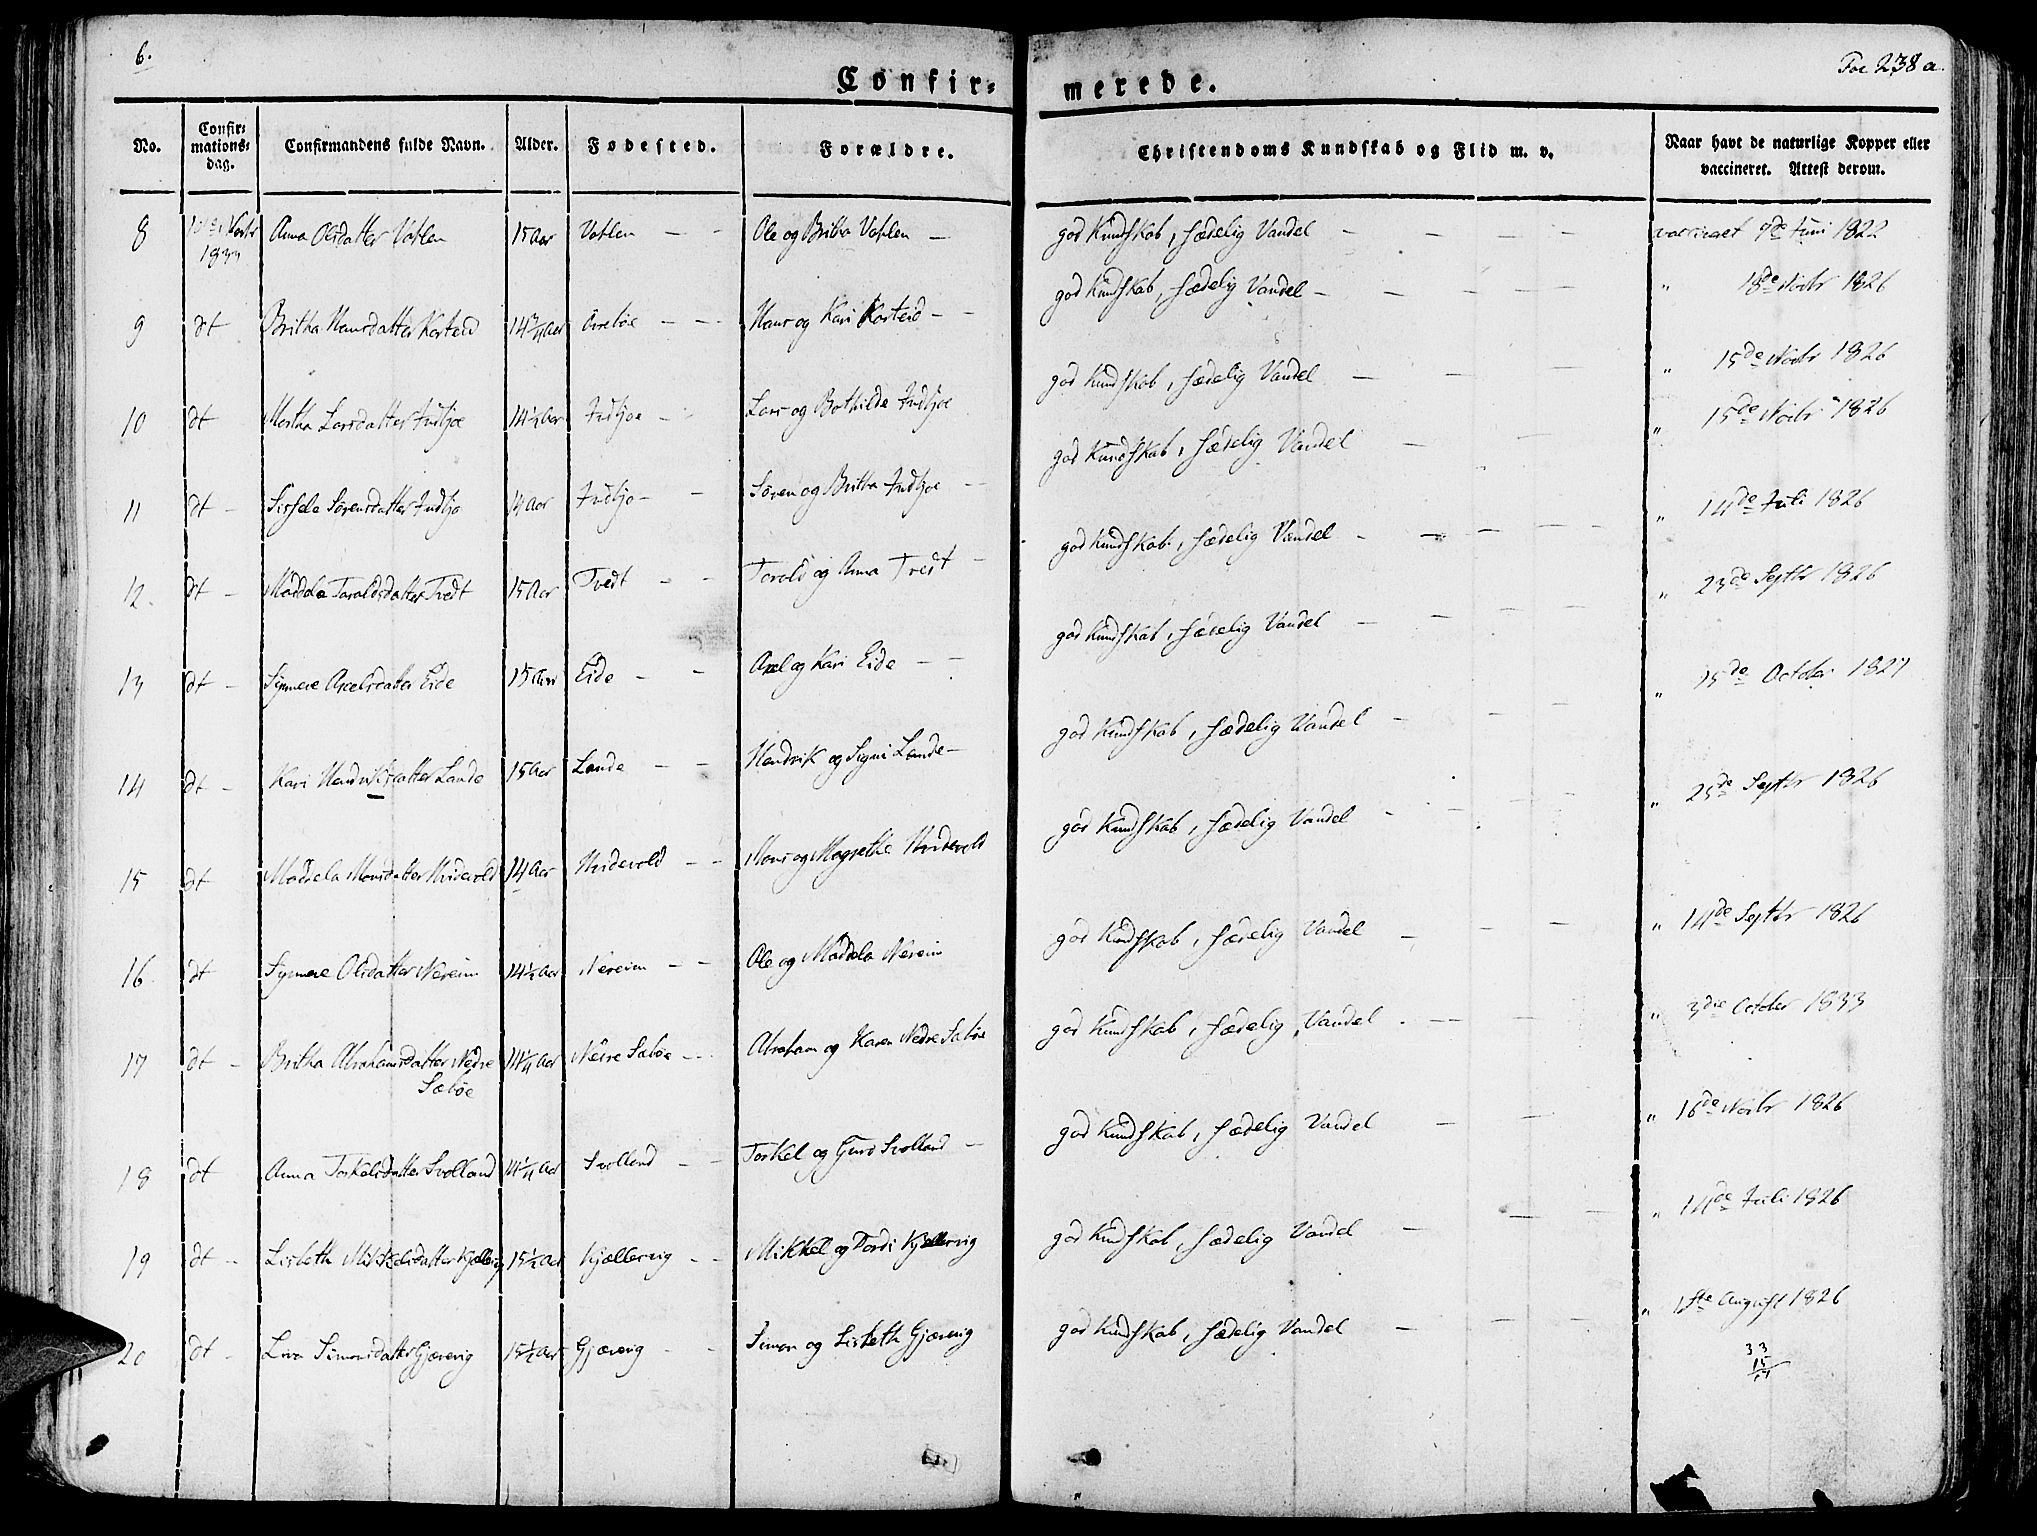 6.
Foe 238 a.
Confir= merede.
No. Confir= mations= dag. Confirmandens fulde Navn. Alder. Fødested. Forældre. Christendoms Kundskab og Flid m. v. Naar havt de naturlige Kopper eller vaccineret. Attest derom.
8 1833 Anna Olsdatter Vatlen 15 Aar Vatlen — — Ole og Britha Vatlen — god Kundskab, sædelig Vandel — — — — 7de Juni 1822
9 dt Britha Hansdatter Karteid 14 Aar — — Hans og Kari Karteid — — god Kundskab, sædelig Vandel — — — — " 18de Novbr 1826
10 dt Martha Larsdatter Indhjøe Aar Indhjøe — Lars og Bothilde Indhjøe god Kundskab, sædelig Vandel — — — — " 15de Novbr 1826
11 dt — Sissela Sørensdatter Indhjø 14 Aar Indhjø — — Søren og Britha Indhjøe — god Kundskab, sædelig Vandel — — — " 15de Novbr 1826
12. dt — Maddela Taraldsdatter Tvedt 15 Aar Tvedt — — Tarald og Anna Tvedt — god Kundskab, sædelig Vandel — — — " 14de Juli 1826
13 dt — Synneve Axelsdatter Eide 15 Aar Eide — — Axel og Kari Eide — — god Kundskab, sædelig Vandel — — — " 23de Septbr 1826
14 dt — Kari Hendriksdatter Lande 15 Aar Lande — — Hendrik og Signi Lande — god Kundskab, sædelig Vandel — — — " 15de October 1827
15 dt Maddela Monsdatter Hvidevold 14 Aar Hvidevold — — Mons og Magrethe Hvidevold god Kundskab, sædelig Vandel — — — " 25de Septbr 1826
16 dt Synneve Olsdatter Nereim 14½ Aar Nereim — — Ole og Maddela Nereim god Kundskab, sædelig Vandel — — — " 14de Septbr 1826
17 dt — Britha Abrahamsdatter Nedre Sæbøe Aar Nedre Sæbøe — Abraham og Karen Nedre Sæbøe god Kundskab, sædelig Vandel — — — " 3die October 1833
18 dt Anna Torkelsdatter Svolland Aar Svolland — — Torkel og Guro Svolland — god Kundskab, sædelig Vandel — — " 16de Novbr 1826
19 dt — Lisbeth Mikkelsdatter Kjællervig 15½ Aar Kjællervig — — Mikkel og Tordi Kjællervig god Kundskab, sædelig Vandel — — — " 14de Juli 1826
20 dt — Simonsdatter Gjærevig 15½ Aar Gjærevig — — Simon og Lisbeth Gjærevig god Kundskab, sædelig Vandel — — — " 1ste August 1826
33
15